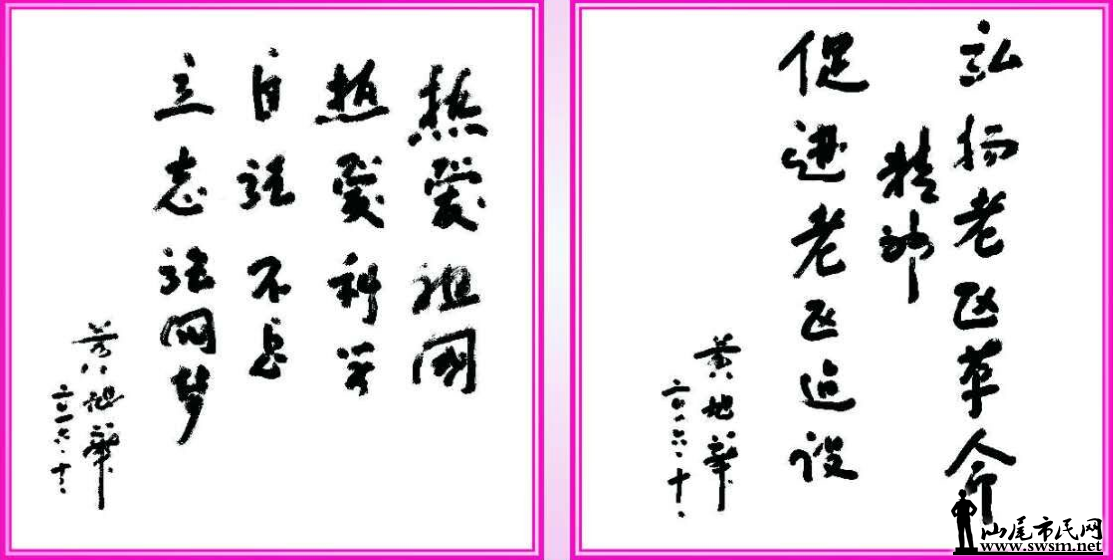 热愛祖國
热愛科学
自强不息
立志强国梦
黄旭华
二〇一六.十.
弘扬老区革命
精神
促進老区建设
黄旭华
二〇一六.十.
汕尾市民网
www.swsm.net